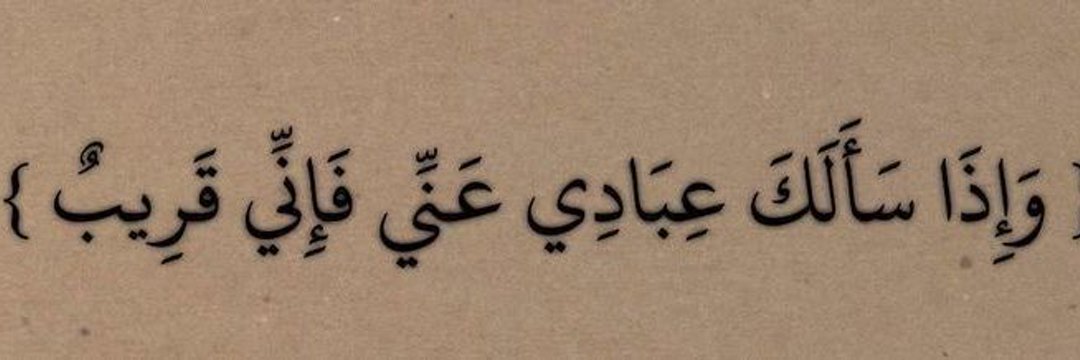 { وَإِذَا سَأَلَكَ عِبَادِي عَنِّي فَإِنِّي قَرِيبٌ }